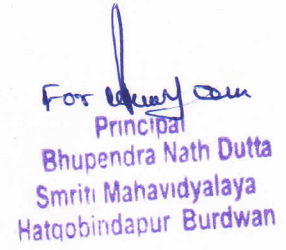 For
Principal
Bhupendra Nath Dutta
Smriti Mahavidyalaya
Hatgobindapur Burdwan